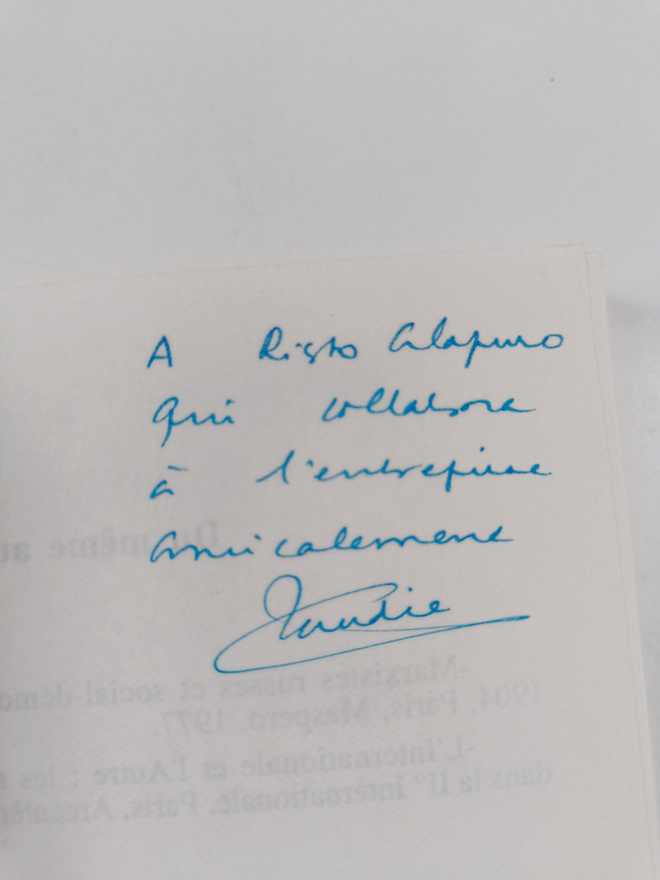 A Risto Alapuro
qui collabora
à l'entreprise
amicalement
Claudie
Du même au
-Marxistes russes et social-démo
1904, Paris, Maspero, 1977.
-L'Internationale et l'Autre : les
dans la II° Internationale, Paris, Arcantèr